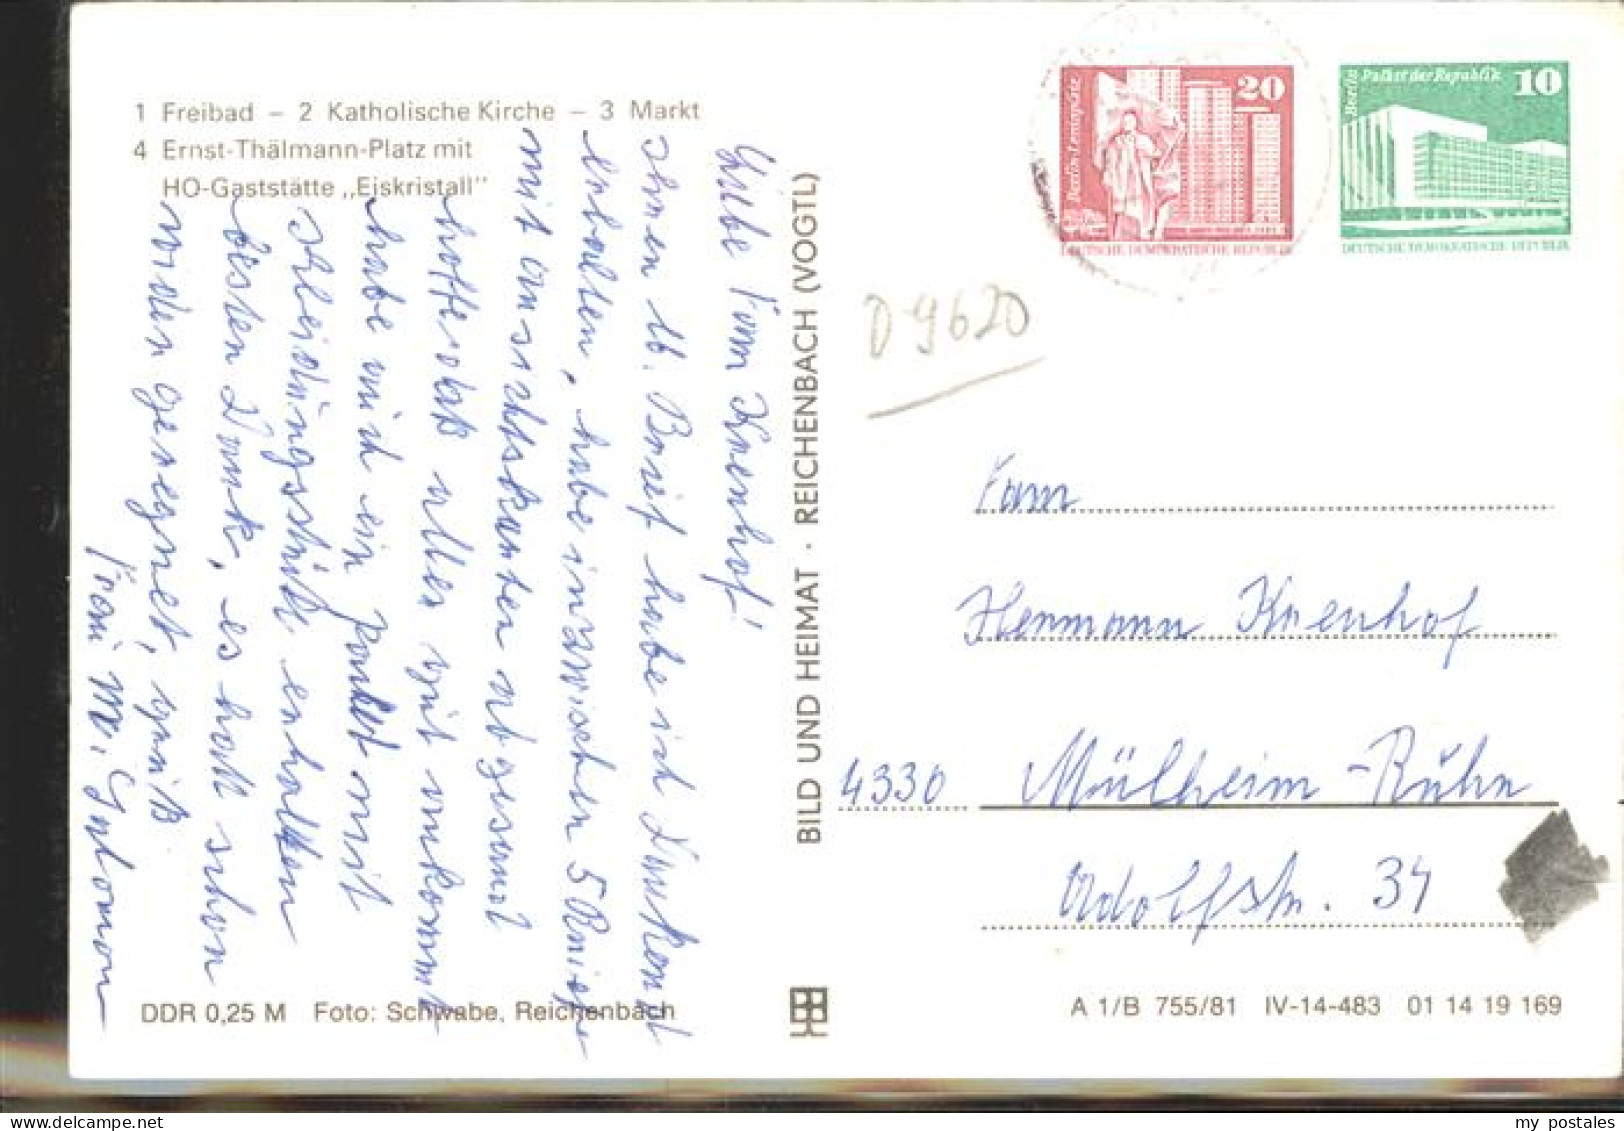 1 Freibad – 2 Katholische Kirche – 3 Markt
4 Ernst-Thälmann-Platz mit
HO-Gaststätte „Eiskristall"
Liebe Fam Krenhof!
Ihren lb. Brief habe ich dankend
erhalten, habe inzwischen 5 Briefe
mit Ansichtskarten abgesand
hoffe das alles gut ankommt
habe auch ein Paket mit
Kleidungsstück enthalten
besten Dank, es hatt schon
wieder geregnet, gruß
BILD UND HEIMAT · REICHENBACH (VOGTL)
Berlin Leninplatz
20
DEUTSCHE DEMOKRATISCHE REPUBLIK
Berlin Palast der Republik
10
DEUTSCHE DEMOKRATISCHE REPUBLIK
D 9620
Fam
Hermann Krenhof
4330 Mülheim-Ruhr
Adolfstr. 34
DDR 0,25 M Foto: Schwabe, Reichenbach
A 1/B 755/81 IV-14-483 01 14 19 169
my postales